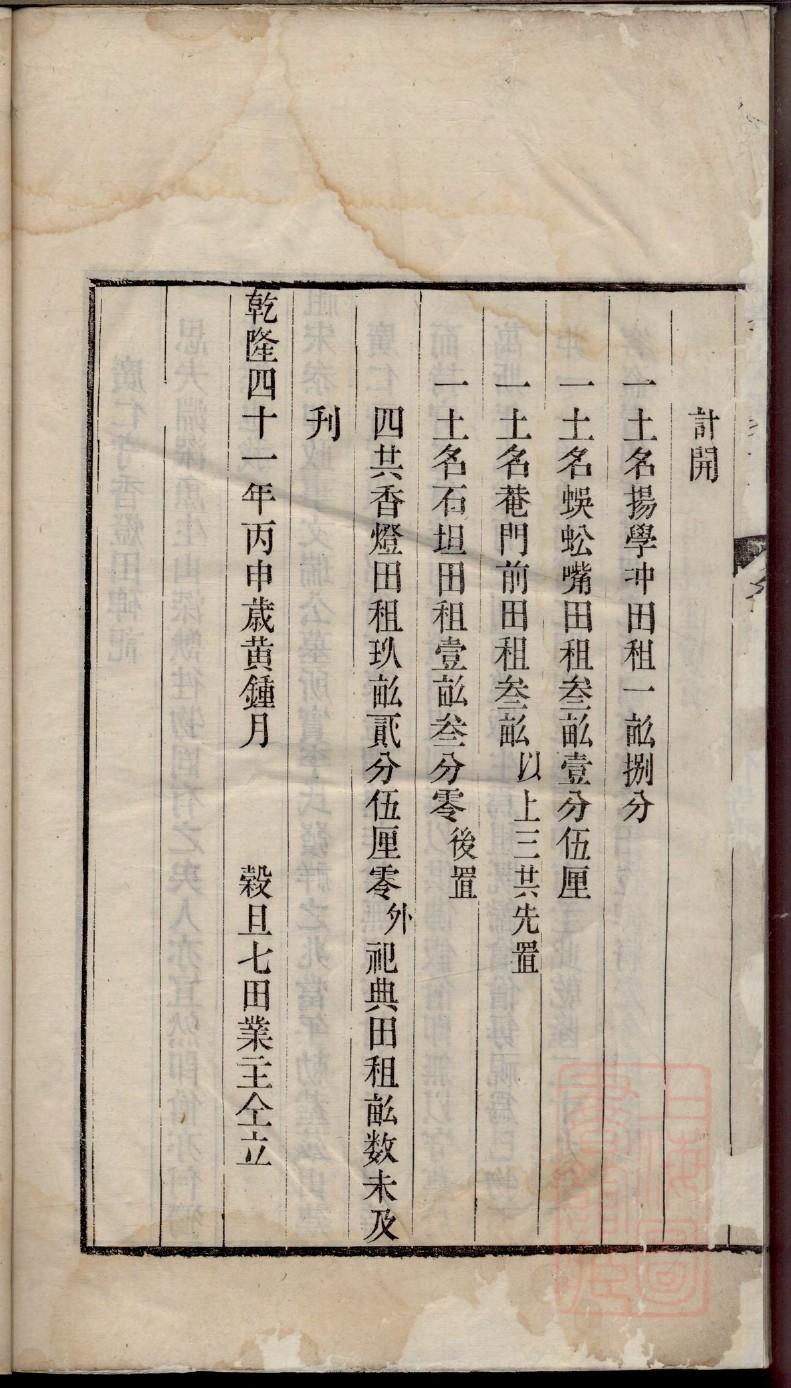 計開
一土名揚學冲田租一畆捌分
一土名蜈蚣嘴田租叁畆壹分伍厘
一土名菴門前田租叁畆以上三共先置
一土名石坦田租壹畆叁分零後置
四共香燈田租玖畆貳分伍厘零外祀典田租畆数未及
刋
乾隆四十一年丙申歲黄鍾月 榖旦七田業主仝立